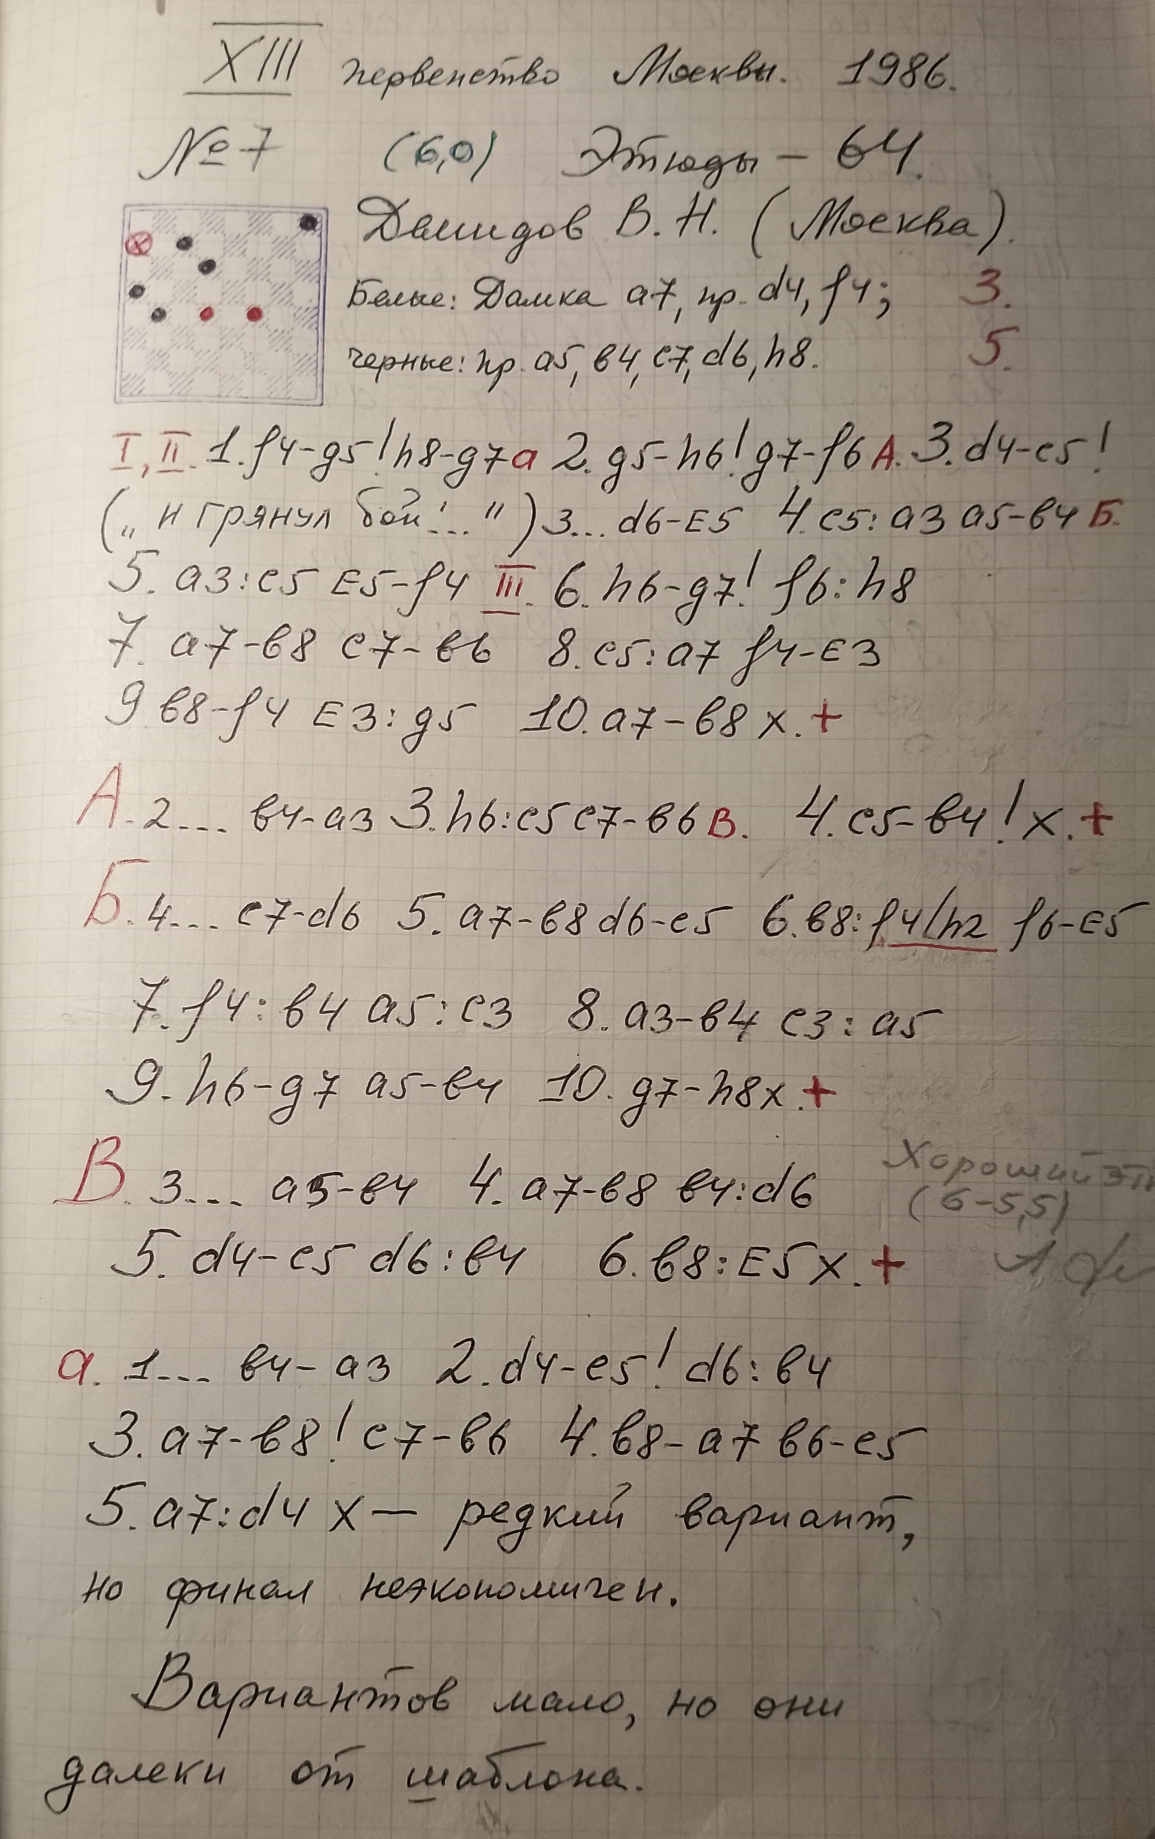 XIII первенство Москвы. 1986.
№ 7 (6,0) Этюды – 64.
Давидов В. Н. (Москва).
Белые: Дамка а7, пр. d4, f4; 3.
черные: пр. а5, в4, с7, d6, h8. 5.
I, II. 1. f4-g5! h8-g7 а 2. g5-h6! g7-f6 А. 3. d4-c5!
(„и грянул бой!..." ) 3... d6-E5 4. c5:a3 a5-в4 Б.
5. a3:c5 E5-f4 III. 6. h6-g7! f6:h8
7. a7-в8 c7-в6 8. c5:a7 f4-E3
9 в8-f4 E3:g5 10. a7-в8 x.+
А. 2... в4-а3 3. h6:c5 c7-в6 В. 4. c5-в4! x.+
Б. 4... c7-d6 5. a7-в8 d6-c5 6. в8:f4/h2 f6-E5
7. f4:в4 a5:c3 8. a3-в4 c3:a5
9. h6-g7 a5-в4 10. g7-h8x.+
В. 3... a5-в4 4. a7-в8 в4:d6
Хороший
(6-5,5)
5. d4-c5 d6:в4 6. в8:E5 x.+
а. 1... в4-а3 2. d4-c5! d6:в4
3. a7-в8! c7-в6 4. в8-a7 в6-c5
5. a7:d4 x — редкий вариант,
но финал неэкономичен.
Вариантов мало, но они
далеки от шаблона.